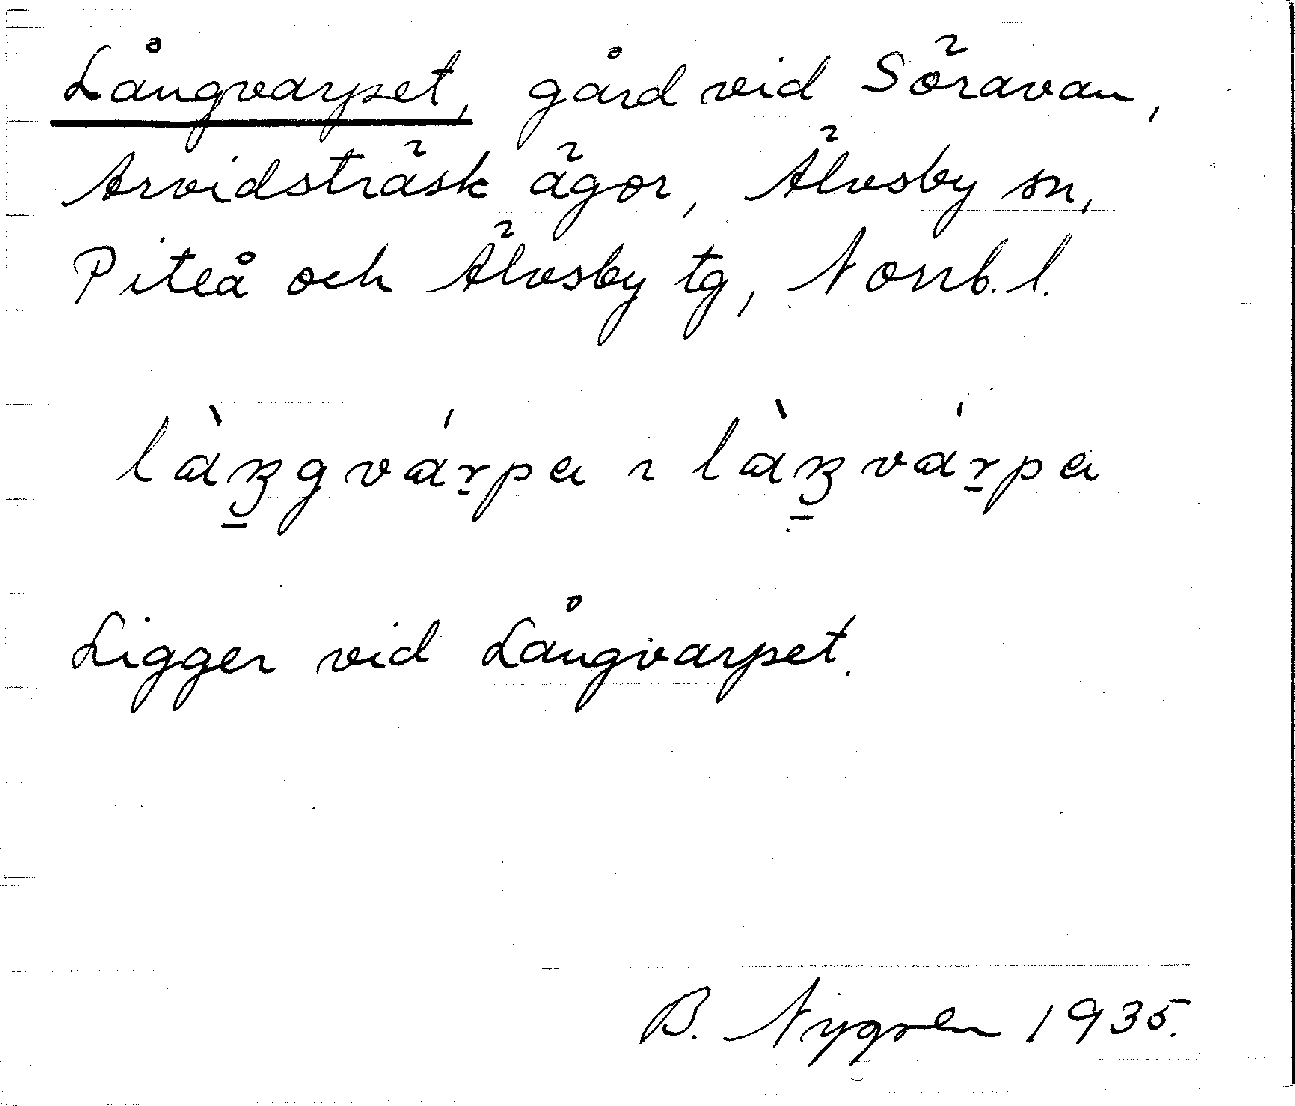 Långvarpet, gård vid Söravan,
Arvidsträsk ägor, Älvsby sn,
Piteå och Älvsby tg, Norrb. l.
Ligger vid Långvarpet.
B. Nygren 1935.